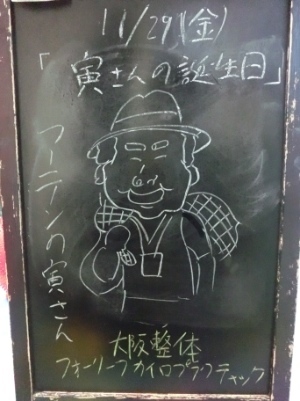 11/29(金)
「寅さんの誕生日」
フーテンの寅さん
大阪整体
フォーリーフカイロプラクティック